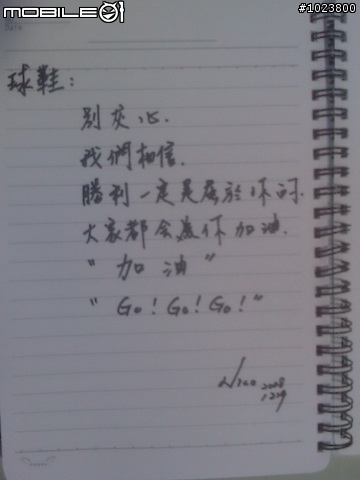 MOBILE01
#1023800
球鞋:
別灰心.
我們相信.
勝利一定是屬於你的.
大家都会為你加油.
"加油"
"Go! Go! Go!"
Nico 2008
1229